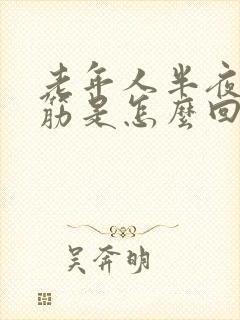 老年人半夜
筋是怎麼回
吴奔明